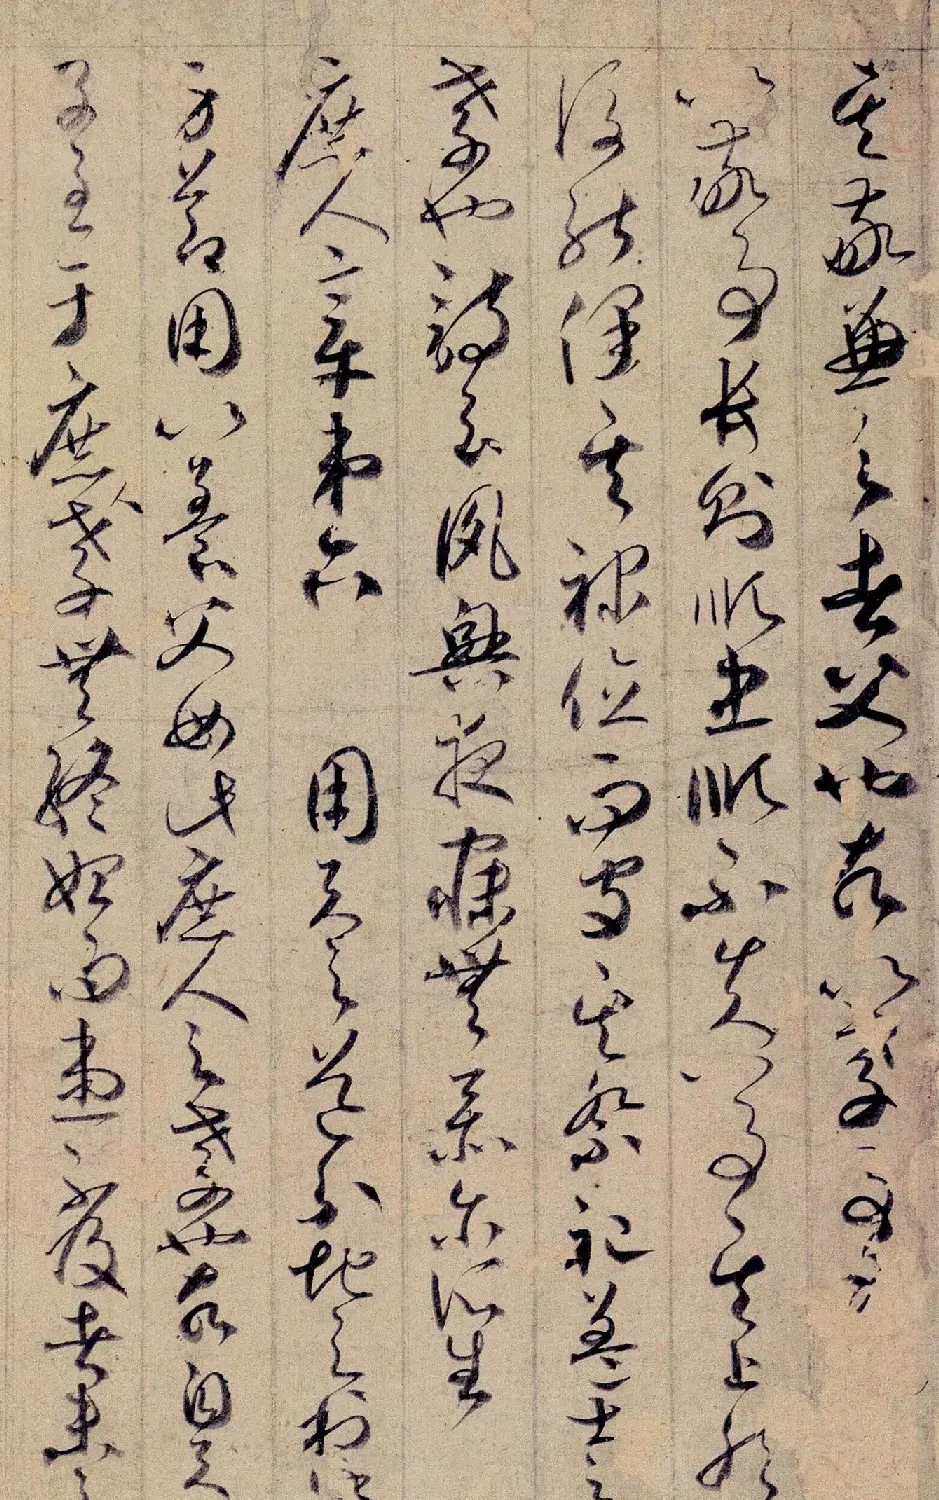 其敬兼之者父也故以孝事君則
以敬事長則順忠順不失以事其上然
後能保其祿位而守其祭祀蓋士之
孝也詩云夙興夜寐無忝尔所生
庶人章第六 用天之道分地之利謹
身節用以養父母此庶人之孝也故自天
子至于庶人孝無終始而患不及者未之